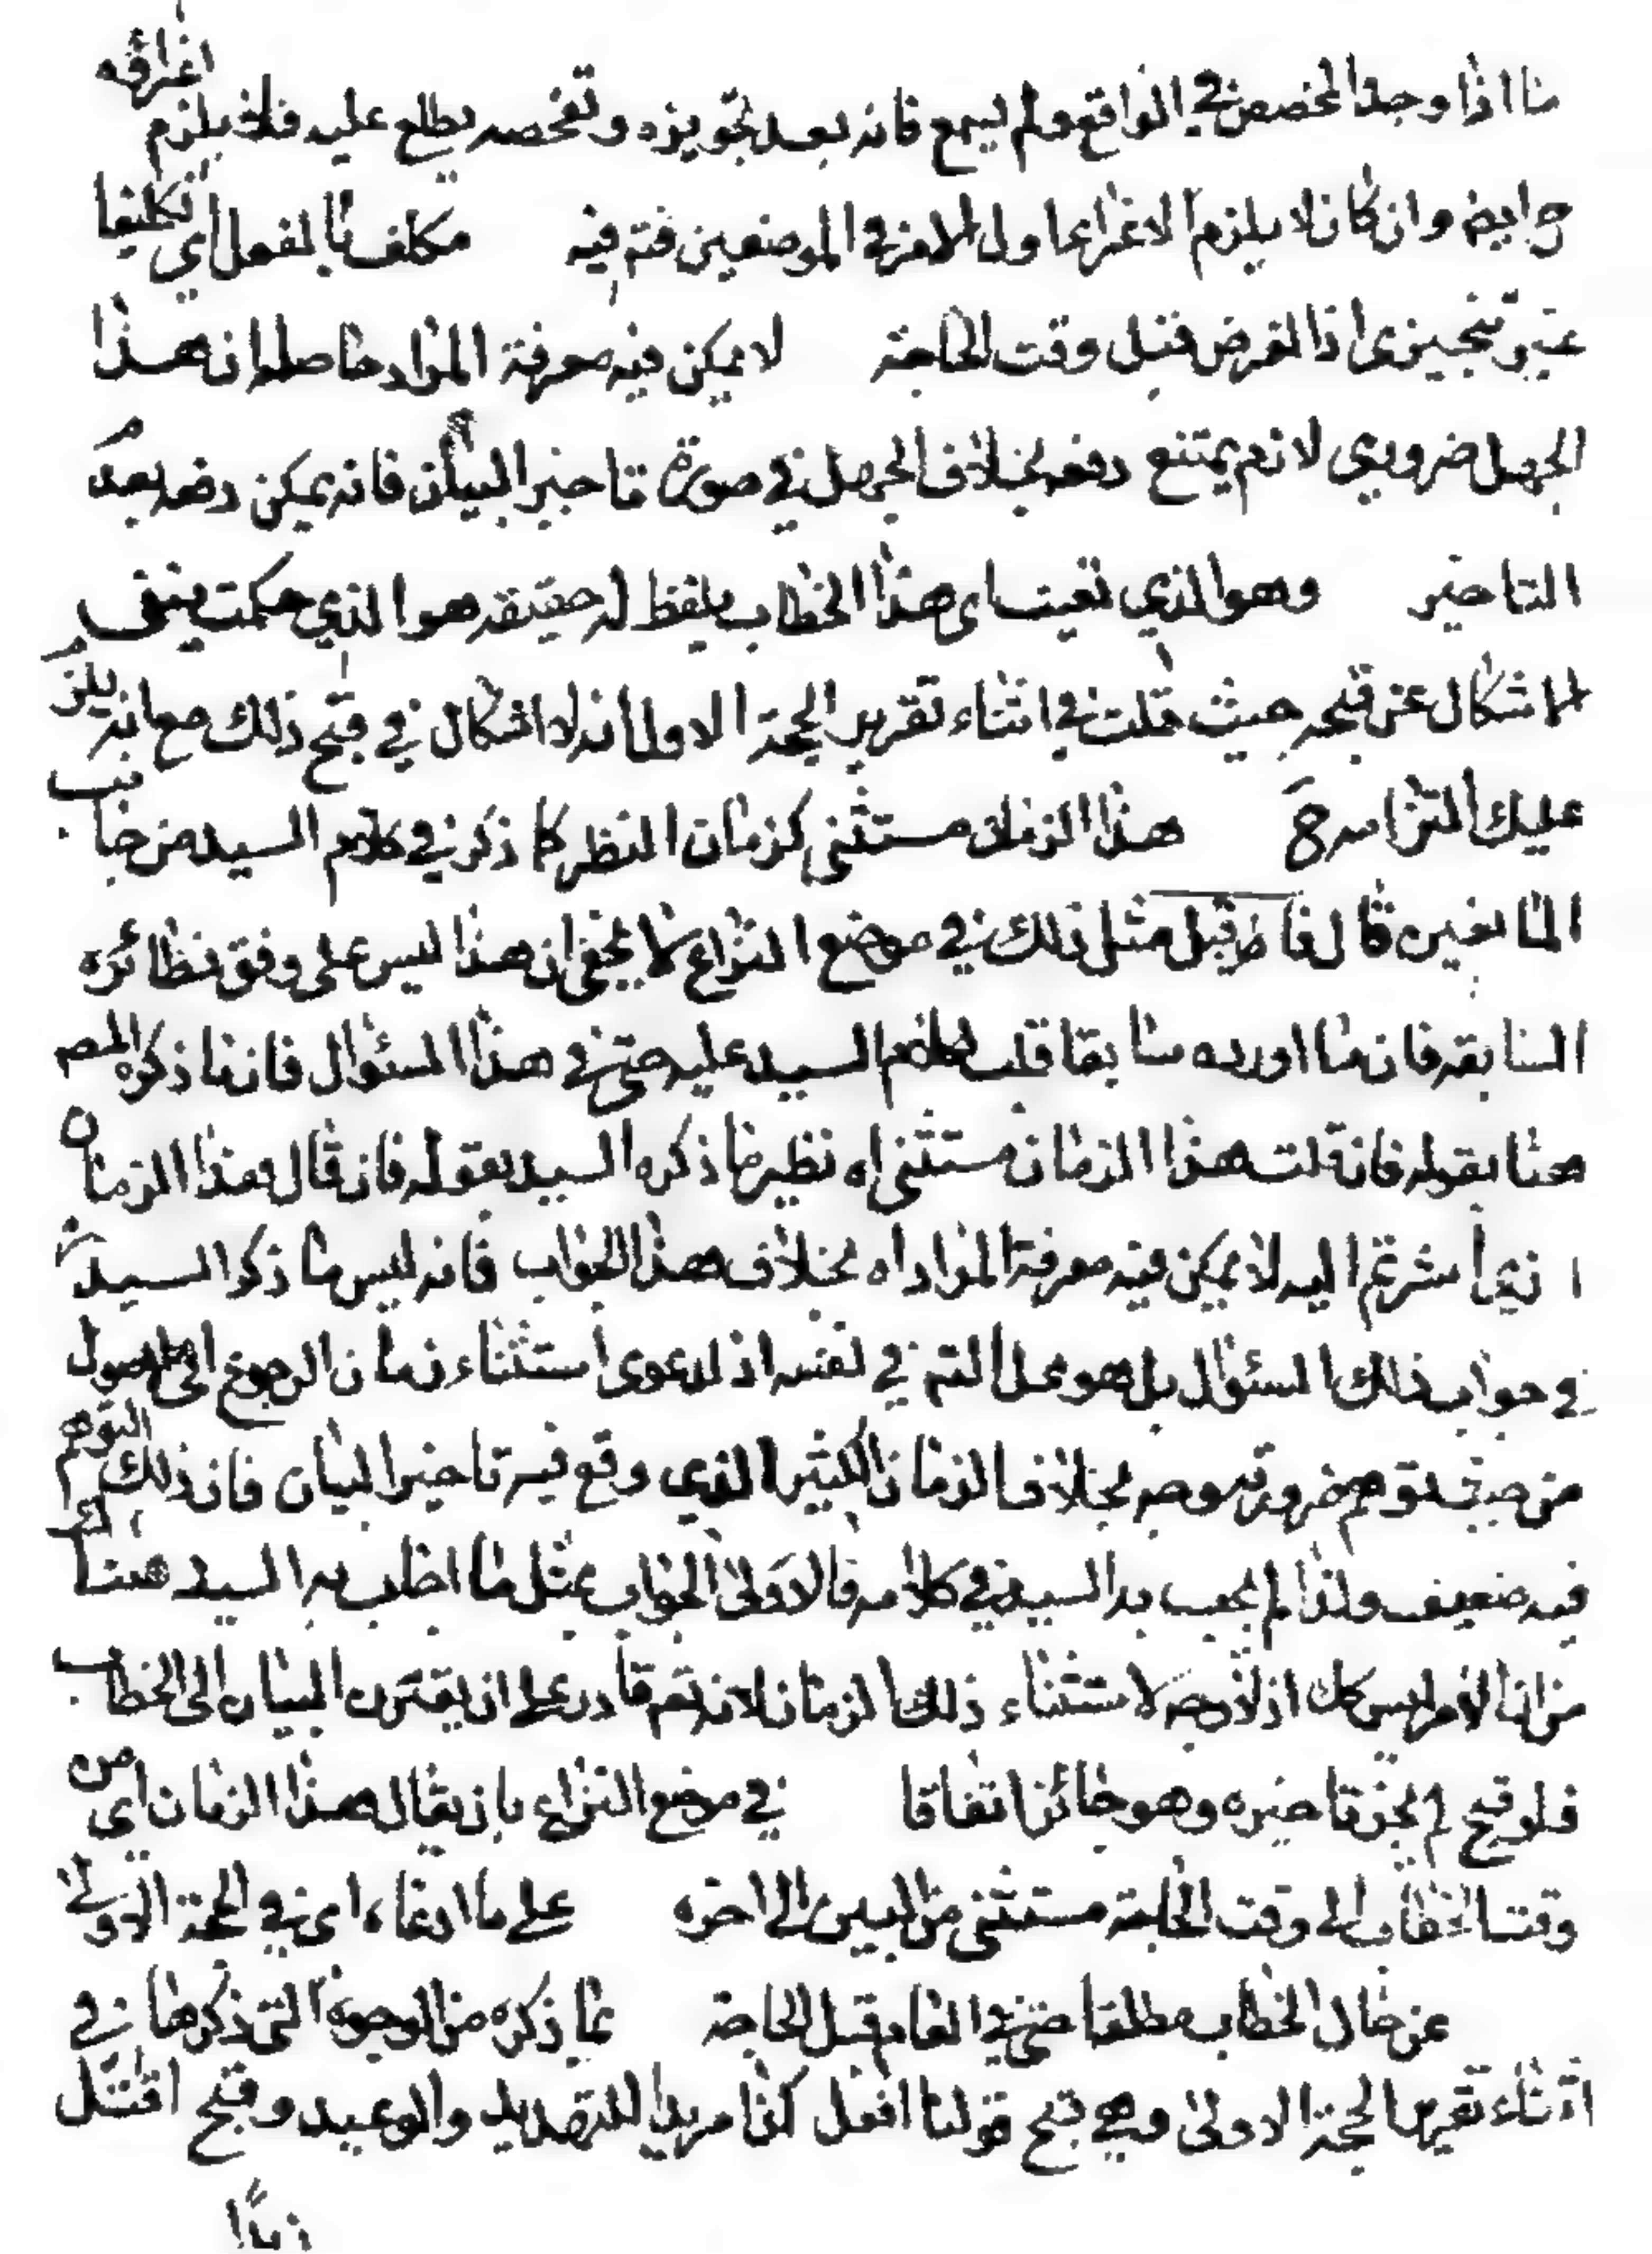 ما اذا وجد المخصص في الواقع ولم يسمع فانه بعد تجويزه وتفحصه يطلع عليه فلا يلزم اغرائه
ح ايض وان كان لا يلزم الاغراء اول الامر في الموضعين فتم فيه مكلف بالفعل اي تكليفا
غير تنجيزى اذا الفرض قبل وقت الحاجة لا يمكن فيه معرفة المراد حاصله ان هذا
الجهل ضروري لانه يمتنع دفعه بخلاف الجهل في صورة تاخير البيان فانه يمكن دفعه بعدم
التاخير وهو الذي نعيت اى هذا الخطاب بلفظ له حقيقة هو الذي حكمت بنفى
الاشكال عن قبحه حيث قلت في اثناء تقرير الحجة الاولى انه لا اشكال في قبح ذلك مع انه يلزم
عليك التزامه ح هذا الزمان مستثنى كزمان النظر كما ذكر في كلام السيد من جانب
المانعين قال فاطر قبل مثل ذلك في موضع النزاع لا يخفى ان هذا ليس على وفق نظائره
السابقه فان ما اورده سابقا قلب كلام السيد عليه حتى في هذا السئوال فان ما ذكره المص
هنا بقوله فان قلت هذا الزمان مستثنى اه نظير ما ذكره السيد بقوله فان قال هذا الزمان
الذي اشرتم اليه لا يمكن فيه معرفة المراد اه بخلاف هذا الجواب فانه ليس ما ذكر السيد
في جواب ذلك السئوال بل هو محل التم في نفسه اذ لدعوى استثناء زمان الرجوع الى الاصول
من حيث توهم ضرورته وجه بخلاف الزمان الكثير الذي وقع فيه تاخير البيان فان ذلك التوهم
فيه ضعيف ولذا لم يجب به السيد في كلامه فالاولى الجواب بمثل ما اطلب به السيد هناك
من ان الامر ليس كك اذ لا وجه لاستثناء ذلك الزمان لانه تم قادر على ان يقترن البيان الى الخطاب
فلو قبح لم يجز تاخيره وهو جائز اتفاقا في موضع النزاع بان يقال هذا الزمان اي من
وقت الخطاب الى وقت الحاجة مستثنى من البين الى اخره على ما ادعاه اى في الحجة الاولى
عن حال الخطاب مطلقا حتى في العام قبل الحاجة مما ذكره من الوجوه التى ذكرها في
اثناء تقرير الحجة الاولى وهي قبح قولنا افعل كذا مريدا للتهديد والوعيد وقبح اقتل
زيدا